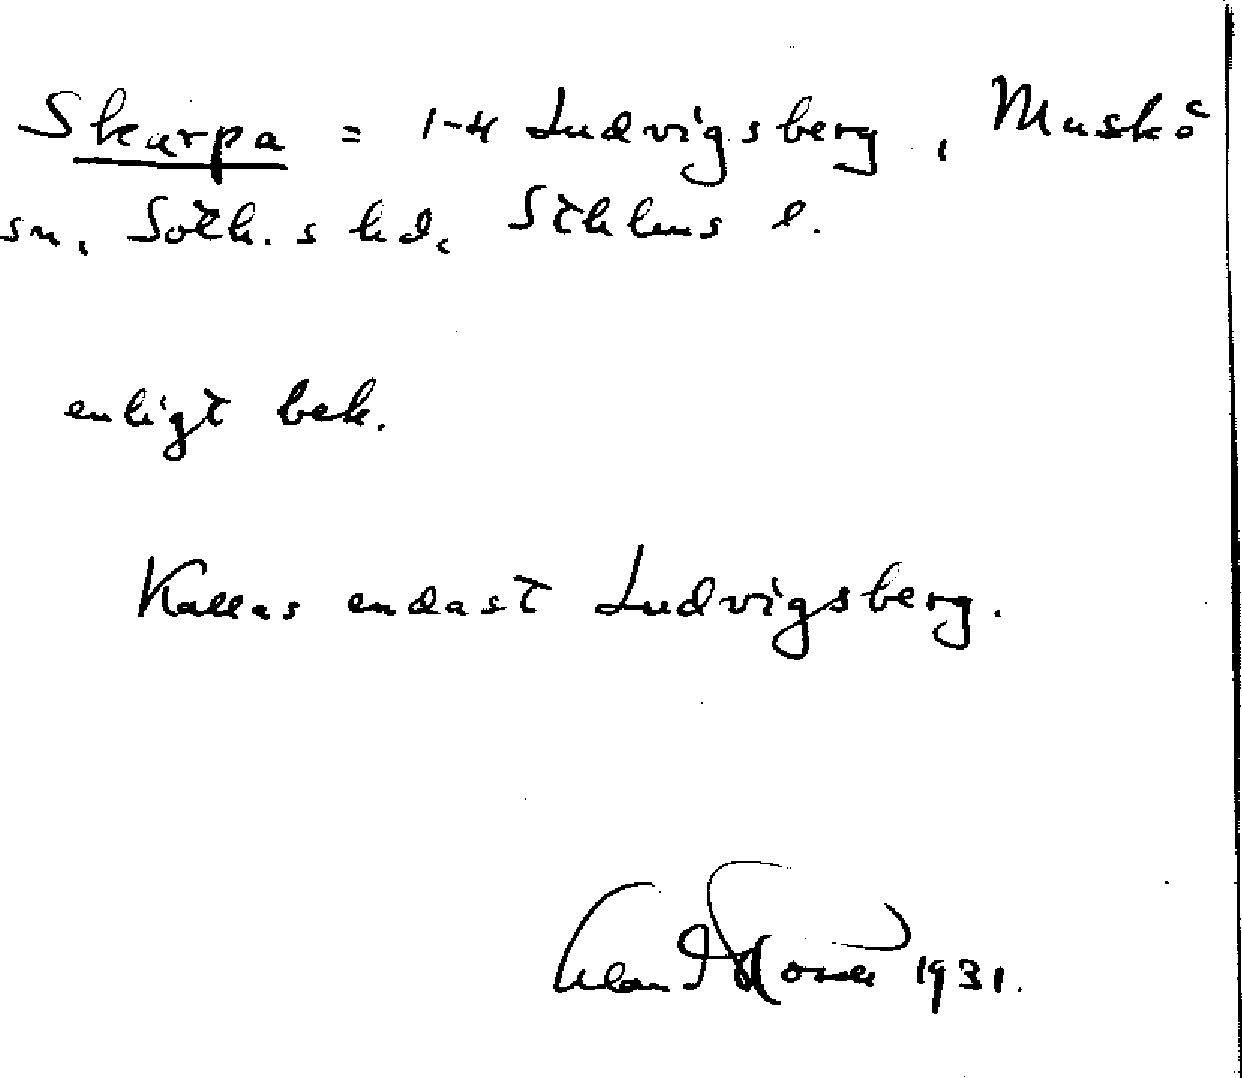 Skarpa = 1-4 Ludvigsberg, Muskö
sn, Soth. s hd, Sthlms l.
enligt bek.
Kallas endast Ludvigsberg.
1931.